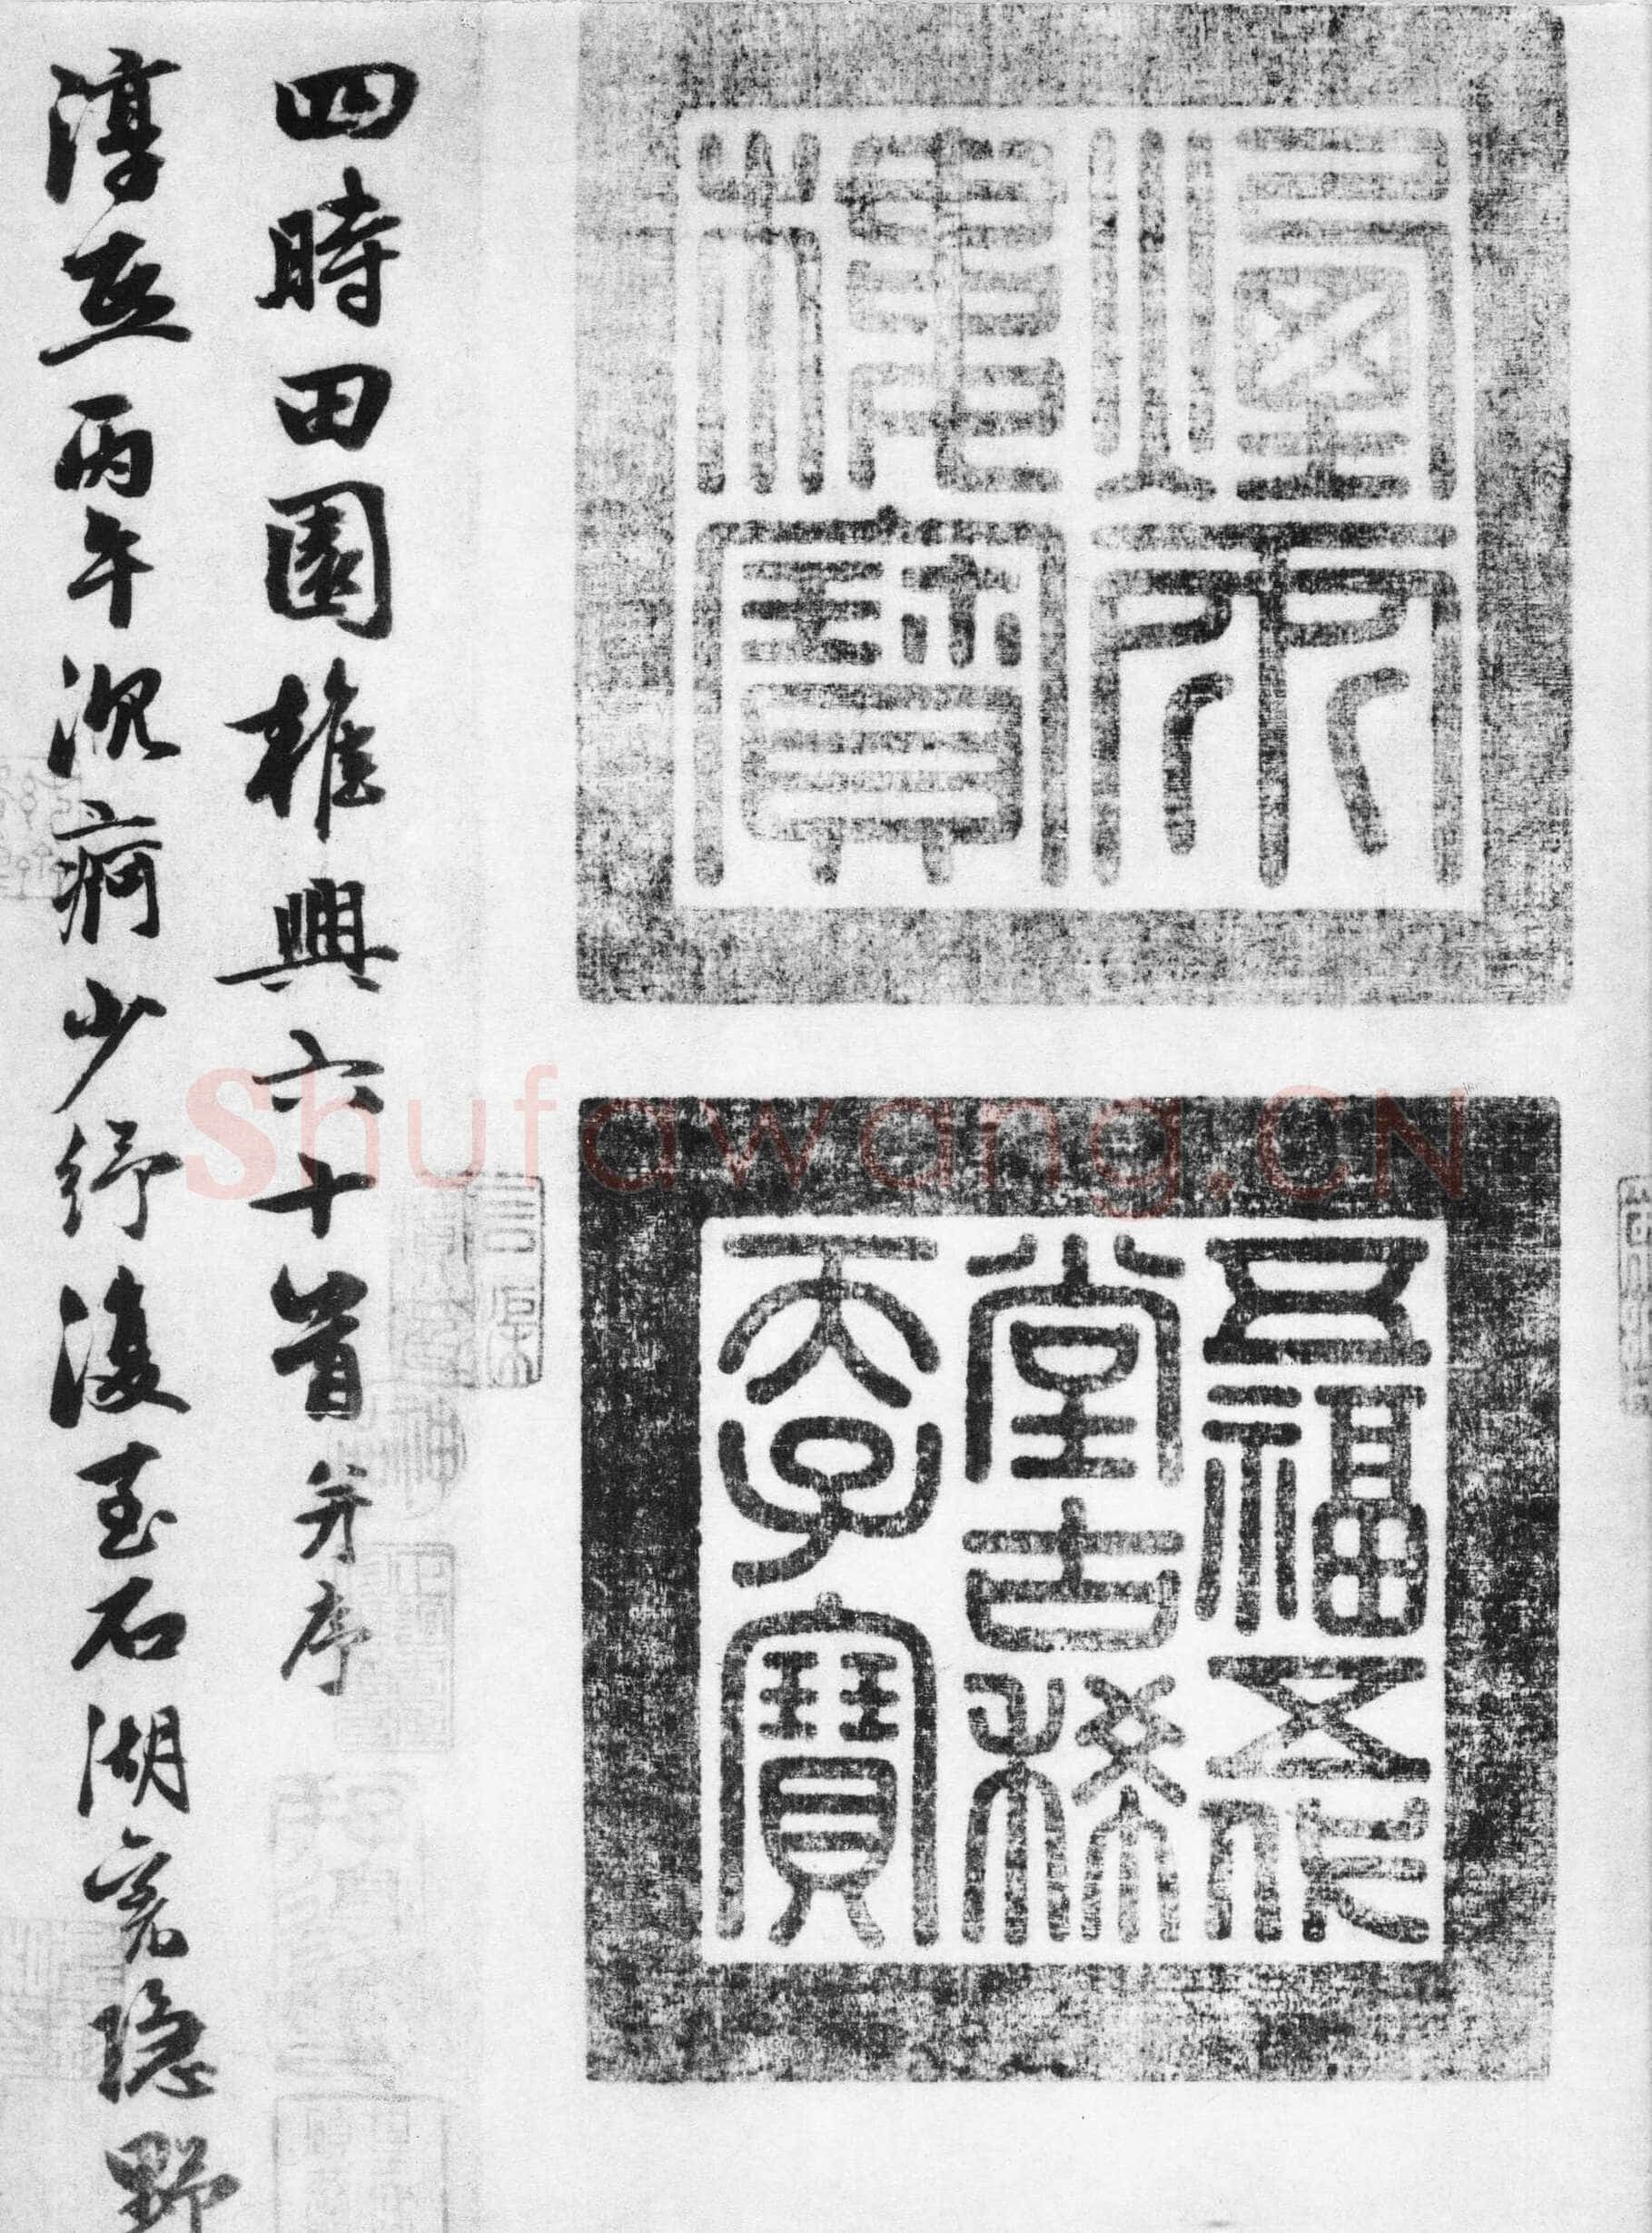 煙雨
樓寶
五福五代
堂古稀
天子寶
四時田園雜興六十首并序
淳熙丙午沉痾少紓復至石湖舊隱野
Shufawang.CN